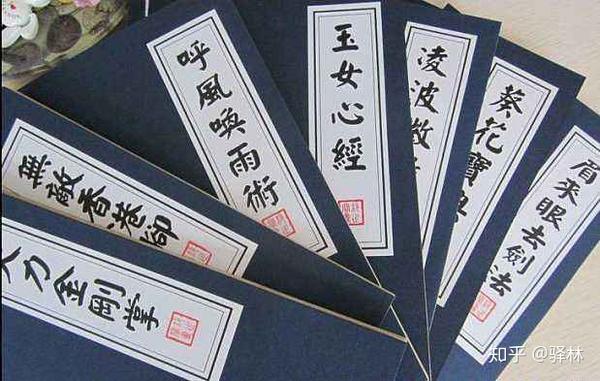 呼風喚雨術
玉女心經
凌波微
葵花寶典
眉來眼去劍法
無敵香港脚
大力金剛掌
知乎 @驿林